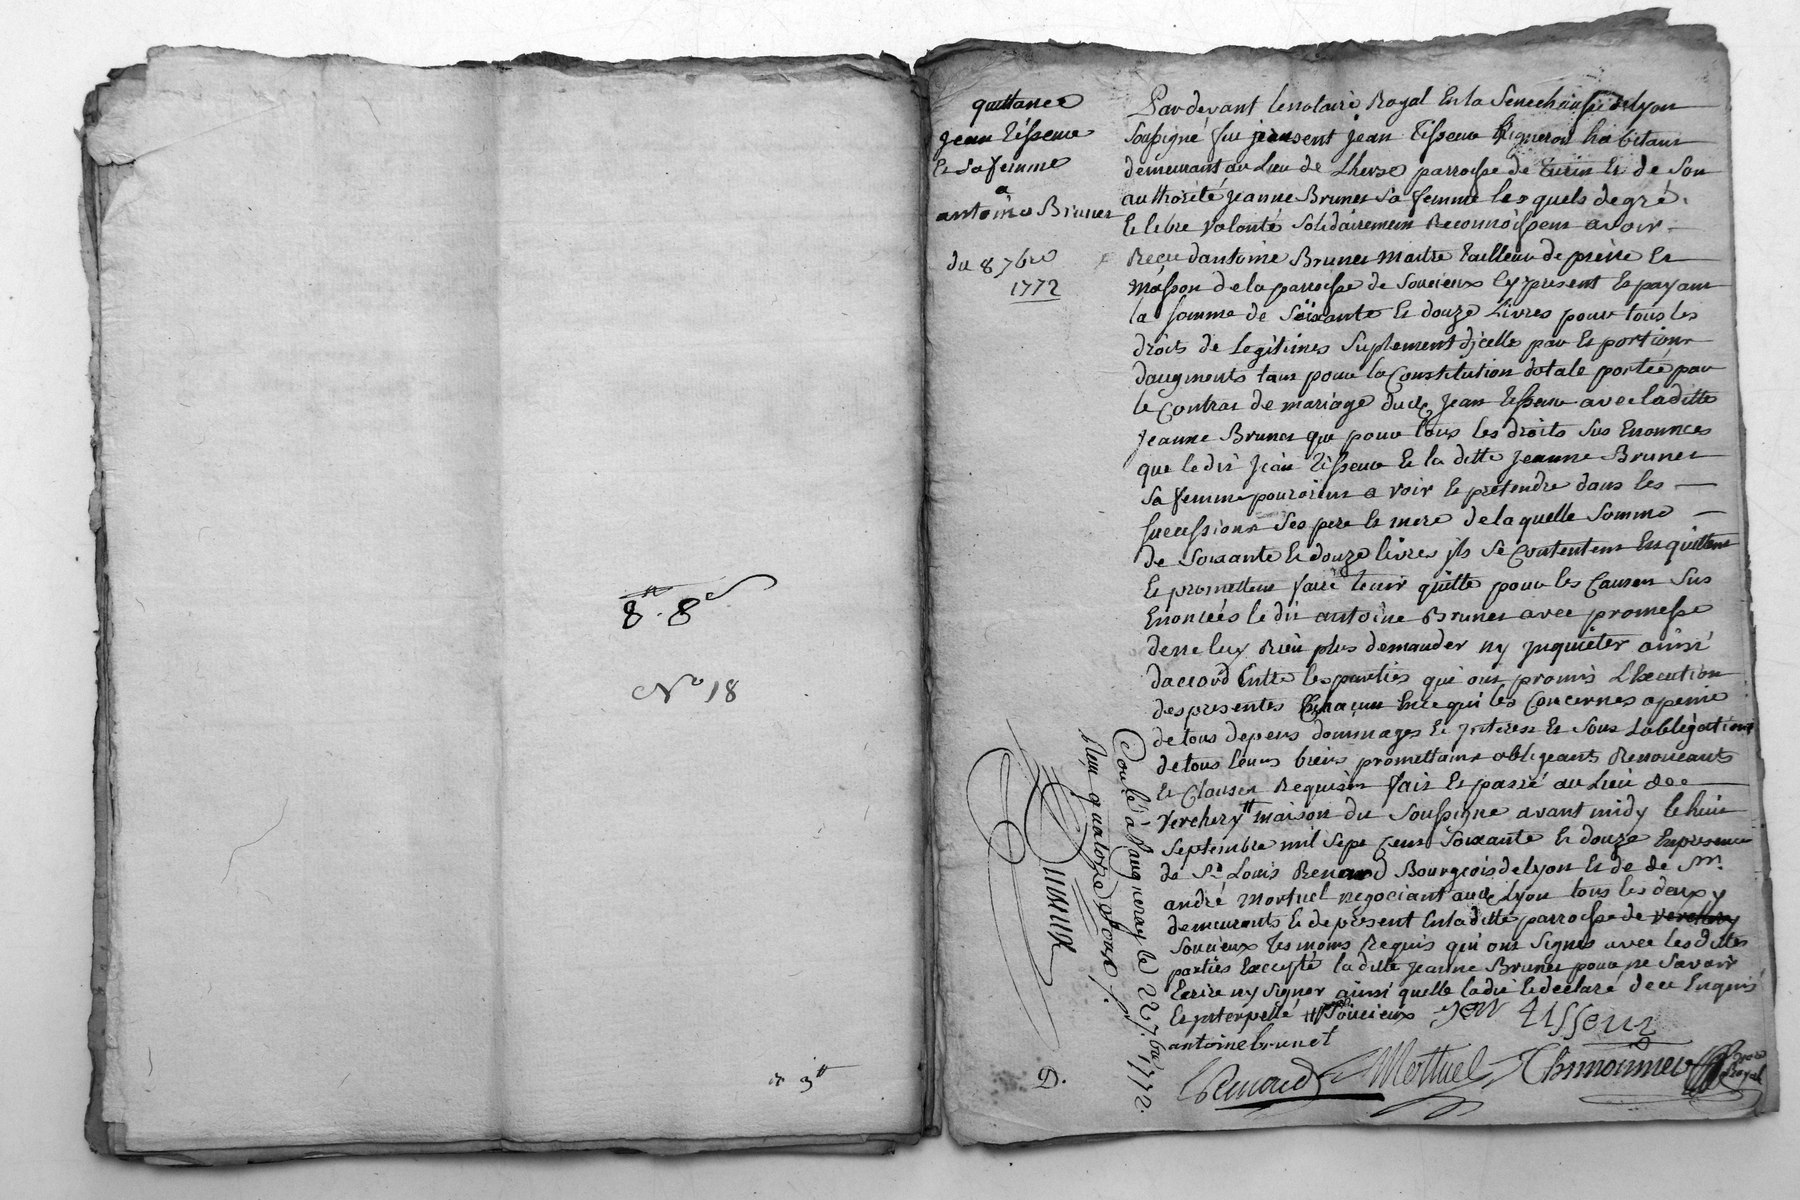 8tt. 8s
No 18
3tt
quittance
Jean Tisseur
Et Sa femme
a
antoine Brunet
du 8 7bre
1772
Pardevant Lenotaire Royal En la Senechaussé de Lyon
Soussigné fut present Jean Tisseur Vigneron habitant
demeurant au Lieu de Lherse parroisse de Turin Et de Son
authorité Jeanne Brunet Sa femme lesquels degré
Et libre Volonté Solidairement Reconnoissent avoir
Reçu dantoine Brunet Maitre Tailleur de pierre Et
Masson de la parroisse de Soucieux Cy present Et payant
la Somme de Soixante Et douze Livres pour tous les
droits de Legitimes Suplement djcelle par Et portions
daugments tant pour la Constitution dotale portée par
le Contrat de mariage dud Jean Tisseur avec laditte
Jeanne Brunet que pour tous les droits Sus Enonnces
que le dit Jean Tisseur Et la ditte Jeanne Brunet
Sa femme pouroient a voir Et pretendre dans les
Successions Ses pere Et mere de laquelle Somme
de Soixante Et douze livres jls Se Contentent En quittent
Et promettent faire tenir quitte pour les Causes Sus
Enoncées le dit antoine Brunet avec promesse
dene luy Rien plus demander ny Jnquieter ainsi
daccord Entre les parties qui ont promis LExecution
des presentes Chacun Ence qui les Concernes apeine
detous depens dommages Et Jnterest Et Sous Lobligations
de tous leurs biens promettants obligeants Renonceants
Et Clauses Requises fait Et passé au Lieu de
Verchery tt maison du Soussigne avant midy le huit
Septembre mil Sept Cent Soixante Et douze En presence
de Sr Louis Renard Bourgeois de Lyon Et de de Sr
andré Mortuel negociant aud Lyon tous les deux y
demeurants Et de present En la ditte parroisse de verchery
Soucieux Temoins Requis qui ont Signes avec les dittes
parties Excepté la ditte Jeanne Brunet pour ne Savoir
Ecrire ny Signer ainsi quelle la dit Et declaré dece Enquis
Et jnterpellé tt Soucieux Jean Tisseur
antoine brunet
Renard Mottuel
Royal
Coulé à Vaugneray le 22 7bre 1772.
Reçu quatorze sous f.
D.